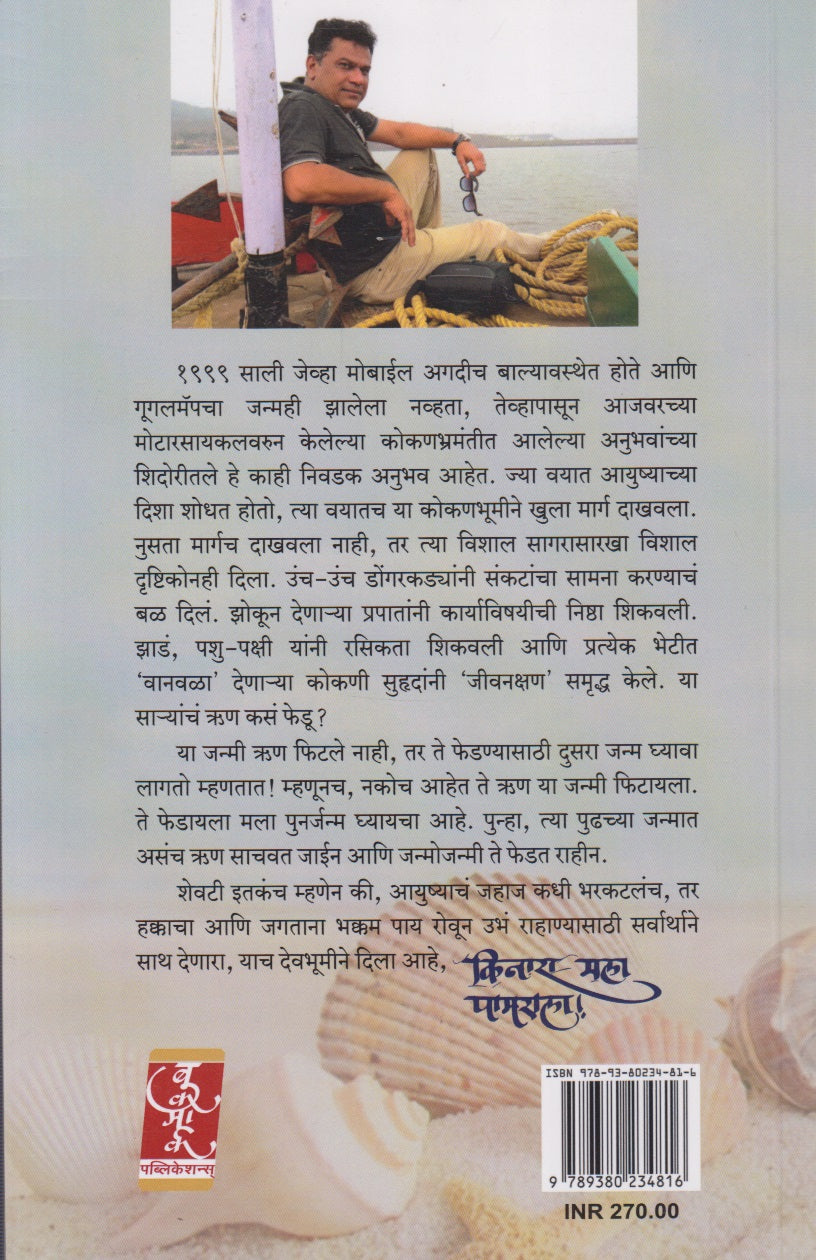 १९९९ साली जेव्हा मोबाईल अगदीच बाल्यावस्थेत होते आणि
गूगलमॅपचा जन्मही झालेला नव्हता, तेव्हापासून आजवरच्या
मोटारसायकलवरुन केलेल्या कोकणभ्रमंतीत आलेल्या अनुभवांच्या
शिदोरीतले हे काही निवडक अनुभव आहेत. ज्या वयात आयुष्याच्या
दिशा शोधत होतो, त्या वयातच या कोकणभूमीने खुला मार्ग दाखवला.
नुसता मार्गच दाखवला नाही, तर त्या विशाल सागरासारखा विशाल
दृष्टिकोनही दिला. उंच-उंच डोंगरकड्यांनी संकटांचा सामना करण्याचं
बळ दिलं. झोकून देणाऱ्या प्रपातांनी कार्याविषयीची निष्ठा शिकवली.
झाडं, पशु-पक्षी यांनी रसिकता शिकवली आणि प्रत्येक भेटीत
‘वानवळा’ देणाऱ्या कोकणी सुहृदांनी ‘जीवनक्षण’ समृद्ध केले. या
साऱ्यांचं ऋण कसं फेडू?
या जन्मी ऋण फिटले नाही, तर ते फेडण्यासाठी दुसरा जन्म घ्यावा
लागतो म्हणतात! म्हणूनच, नकोच आहेत ते ऋण या जन्मी फिटायला.
ते फेडायला मला पुनर्जन्म घ्यायचा आहे. पुन्हा, त्या पुढच्या जन्मात
असंच ऋण साचवत जाईन आणि जन्मोजन्मी ते फेडत राहीन.
शेवटी इतकंच म्हणेन की, आयुष्याचं जहाज कधी भरकटलंच, तर
हक्काचा आणि जगताना भक्कम पाय रोवून उभं राहाण्यासाठी सर्वार्थाने
साथ देणारा, याच देवभूमीने दिला आहे, किनारा मला
पामराला!
बुकमार्क
पब्लिकेशन्स्
ISBN 978-93-80234-81-6
9 789380 234816
INR 270.00